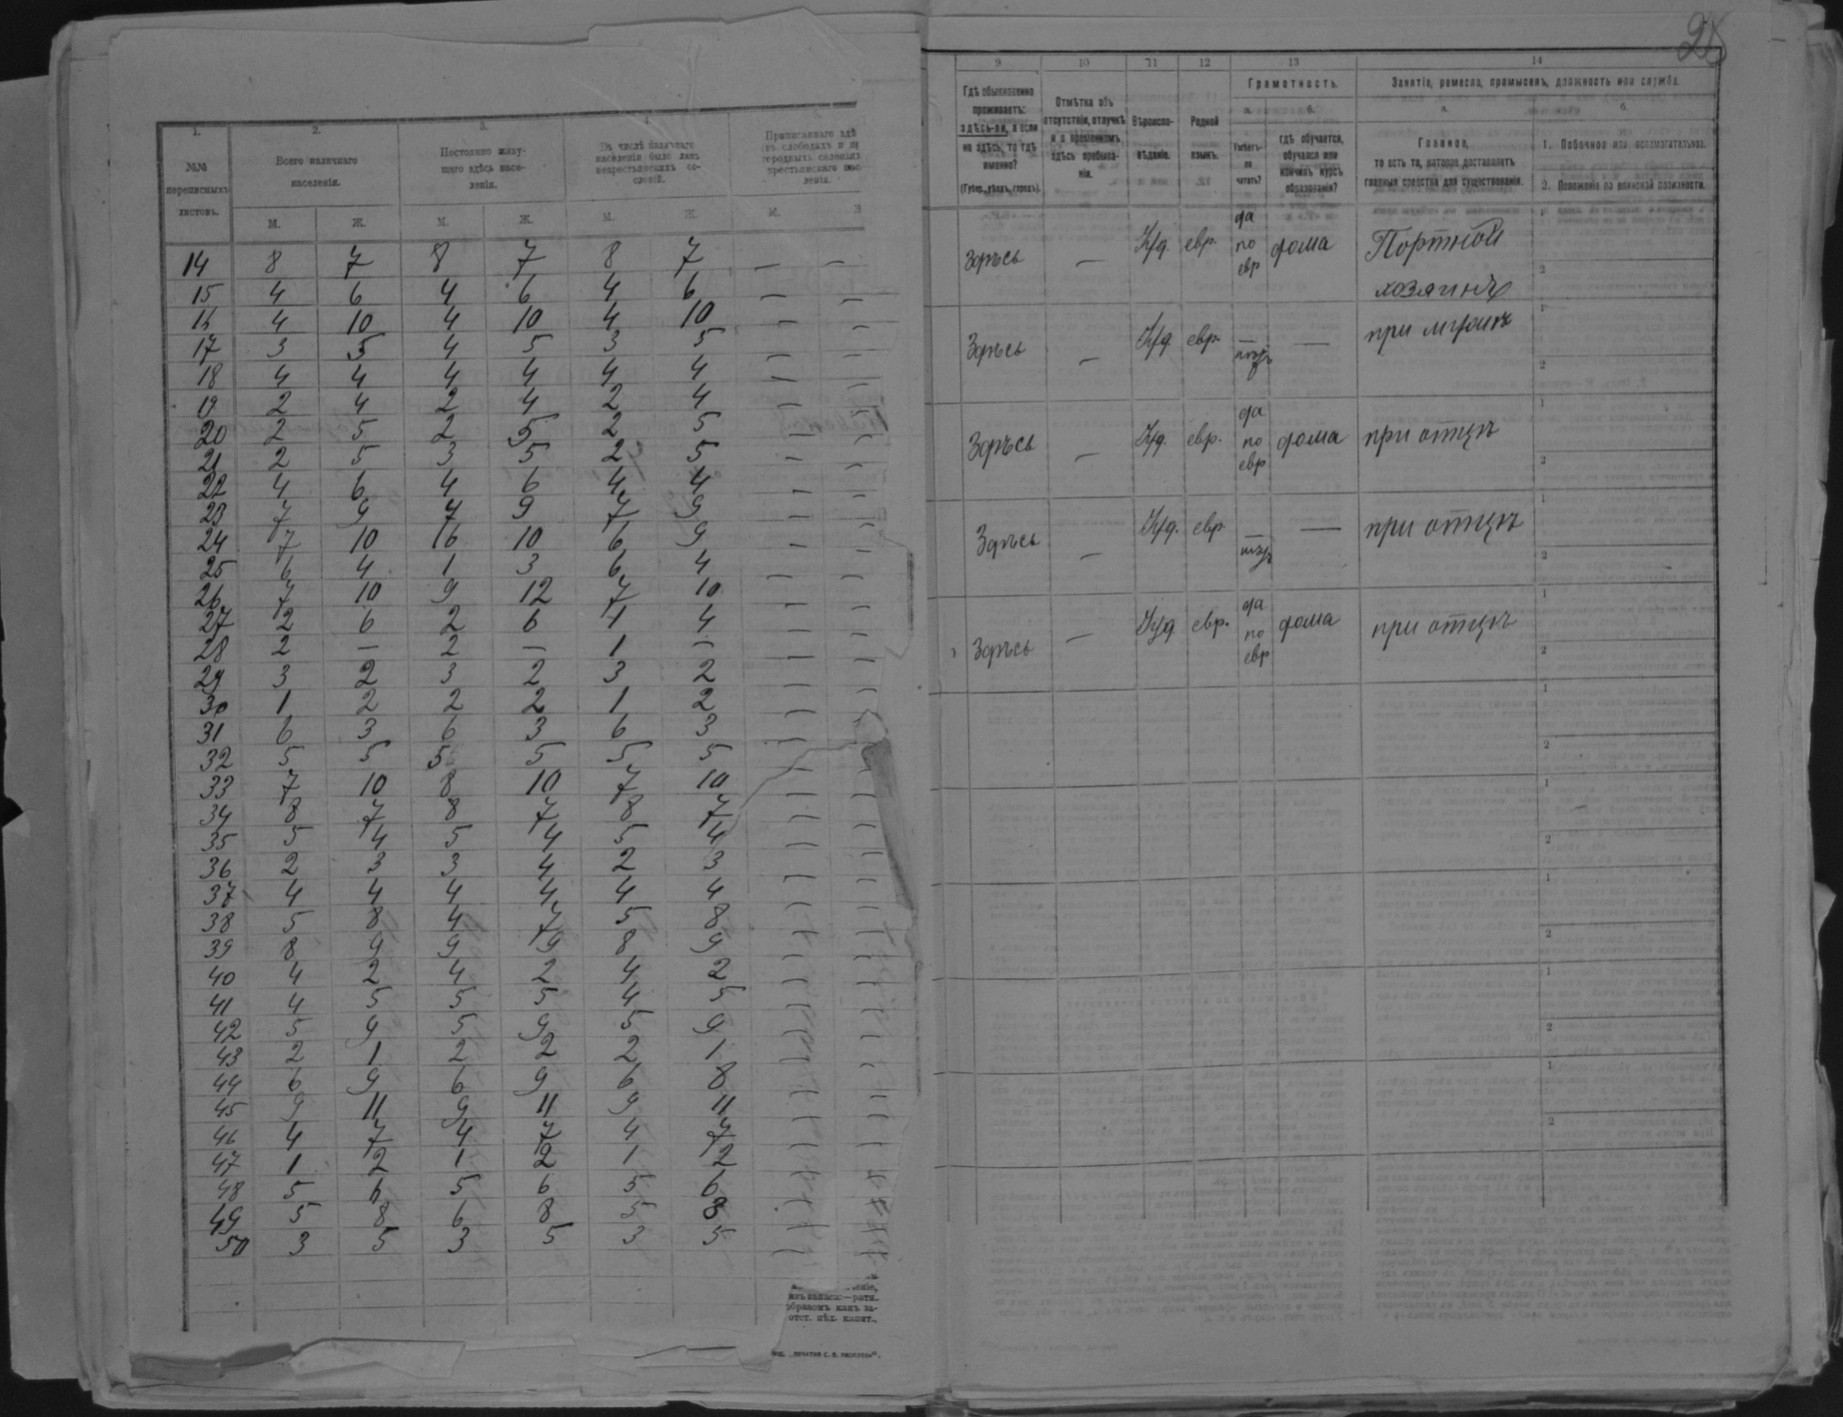 1. 2. 3. 4.
№№ переписныхъ листовъ.
Всего наличнаго населенія.
Постоянно живущаго здѣсь населенія.
М. Ж. М. Ж. М. Ж. М.
14 8 7 8 7 8 7 — —
15 4 6 4 6 4 6 — —
16 4 10 4 10 4 10 — —
17 3 5 4 5 3 5 — —
18 4 4 4 4 4 4 — —
19 2 4 2 4 2 4 — —
20 2 5 2 5 2 5 — —
21 2 5 3 5 2 5 — —
22 4 6 4 6 4 4 — —
23 7 9 4 9 7 9 — —
24 7 10 16 10 6 9 — —
25 6 4 1 3 6 4 — —
26 7 10 9 12 7 10 — —
27 2 6 2 6 1 4 — —
28 2 — 2 — 1 — — —
29 3 2 3 2 3 2 — —
30 1 2 2 2 1 2 — —
31 6 3 6 3 6 3 — —
32 5 5 5 5 5 5 — —
33 7 10 8 10 7 10 — —
34 8 7 8 7 8 7 — —
35 5 4 5 4 5 4 — —
36 2 3 3 4 2 3 — —
37 4 4 4 4 4 4 — —
38 5 8 4 7 5 8 — —
39 8 9 9 9 8 9 — —
40 4 2 4 2 4 2 — —
41 4 5 5 5 4 5 — —
42 5 9 5 9 5 9 — —
43 2 1 2 2 2 1 — —
44 6 9 6 9 6 8 — —
45 9 11 9 11 9 11 — —
46 4 7 4 7 4 7 — —
47 1 2 1 2 1 2 — —
48 5 6 5 6 5 6
49 5 8 6 8 5 8
50 3 5 3 5 3 5
9 10 11 12 13 14
Гдѣ обыкновенно проживаетъ: здѣсь-ли, а если не здѣсь, то гдѣ именно?
(Губер., уѣздъ, городъ).
Отмѣтка объ отсутствіи, отлучкѣ и о временномъ здѣсь пребываніи.
Вѣроисповѣданіе.
Родной языкъ.
Грамотность.
а. б.
Умѣетъ-ли читать?
гдѣ обучается, обучался или кончилъ курсъ образованія?
Занятіе, ремесло, промыселъ, должность или служба.
а. б.
Главное,
то есть то, которое доставляетъ
главныя средства для существованія.
1. Побочное или вспомогательное.
2. Положеніе по воинской повинности.
Здѣсь — Іуд. евр. да по евр дома Портной хозяинъ
Здѣсь — Іуд. евр. — — при мужѣ
Здѣсь — Іуд. евр. да по евр дома при отцѣ
Здѣсь — Іуд. евр — — при отцѣ
Здѣсь — Іуд евр. да по евр дома при отцѣ